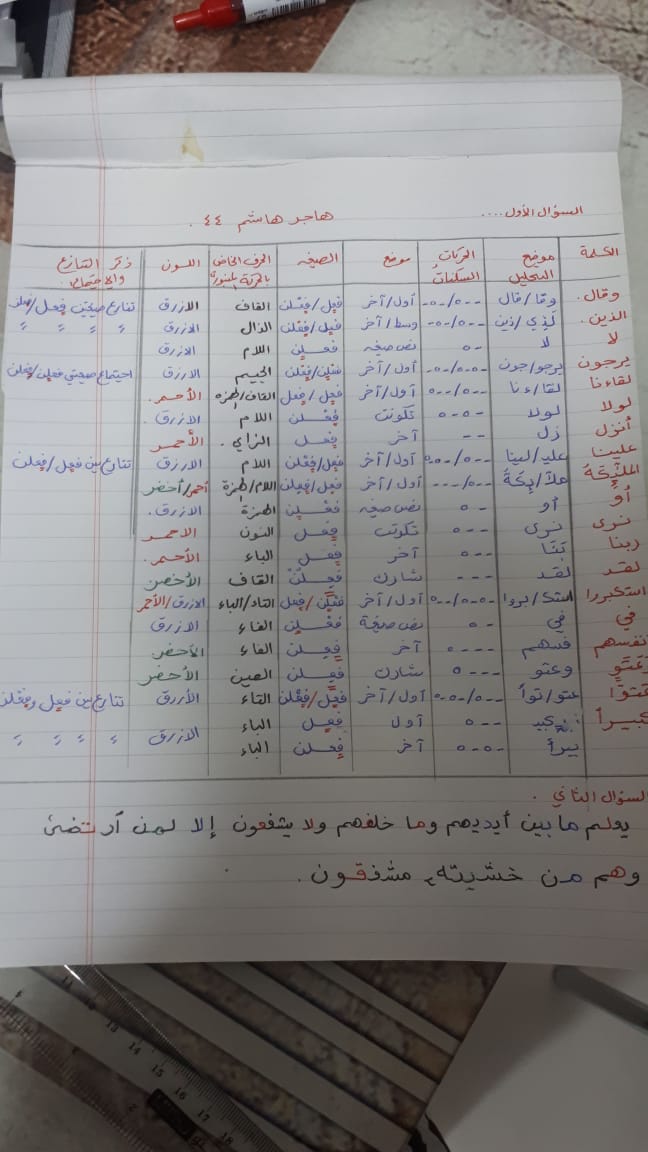 السؤال الأول....
هاجر هاشم ٤٤ .
الكلمة موضع التحليل الحركات السكنات موضع الصيغه الحرف الخاص اللون ذكر التنازع والاجتماع
وقال. وقا/قال --٥/-٥- أول/آخر فعل/فعلن القاف الازرق تنازع صيغتي فعل/فعلن
الذين. لذي/ذين --٥/-٥- وسط/آخر فعل/فعلن الذال الازرق ٫ ٫ ٫ ٫
لا لا -٥ نص صيغه فعلن اللام الازرق
يرجون يرجو/جون -٥-٥/-٥- أول/آخر فعلن الجيم الازرق اجتماع صيغتي فعلن/فعلن
لقاءنا لقا/ءنا --٥/--٥ أول/آخر فعل/فعل القاف/الهمزه الأحمر.
لولا لولا -٥-٥ تكونت فعلن اللام الازرق.
أنزل زل -- آخر فعل الزاي. الأحمر
علينا علي/لينا --٥/-٥-٥ أول/آخر فعل/فعلن اللام الازرق تنازع بين فعل/فعلن
الملئكة ملأ/ئكة --٥/--- أول/آخر فعل/فعلن اللام/الهمزة أحمر/أخضر
أو أو -٥ نص صيغه فعلن الهمزة الازرق.
نرى نرى --٥ تكونت فعل النون الاحمر
ربنا بنا --٥ آخر فعل الباء الأحمر.
لقد لقد --- شارك فعلن القاف الأخضر
استكبروا استك/بروا -٥-٥/--٥ أول/آخر فعل التاء/الباء الازرق/الأحمر
في في -٥ نص صيغة فعلن الفاء الازرق
أنفسهم فسهم ---٥ آخر فعلن الفاء الأخضر
وعتو وعتو ---٥ شارك فعلن العين الأخضر
عتوًا عتو/توأ --٥/-٥-٥ أول/آخر فعل/فعلن التاء الأزرق تنازع بين فعل وفعلن
كبيرأ كبير --٥ أول فعل الباء الازرق ٫ ٫ ٫ ٫
بيرأ -٥-٥ آخر فعلن الباء
السؤال الثاني .
يعلم ما بين أيديهم وما خلفهم ولا يشفعون إلا لمن ارتضى
وهم من خشيته مشفقون .